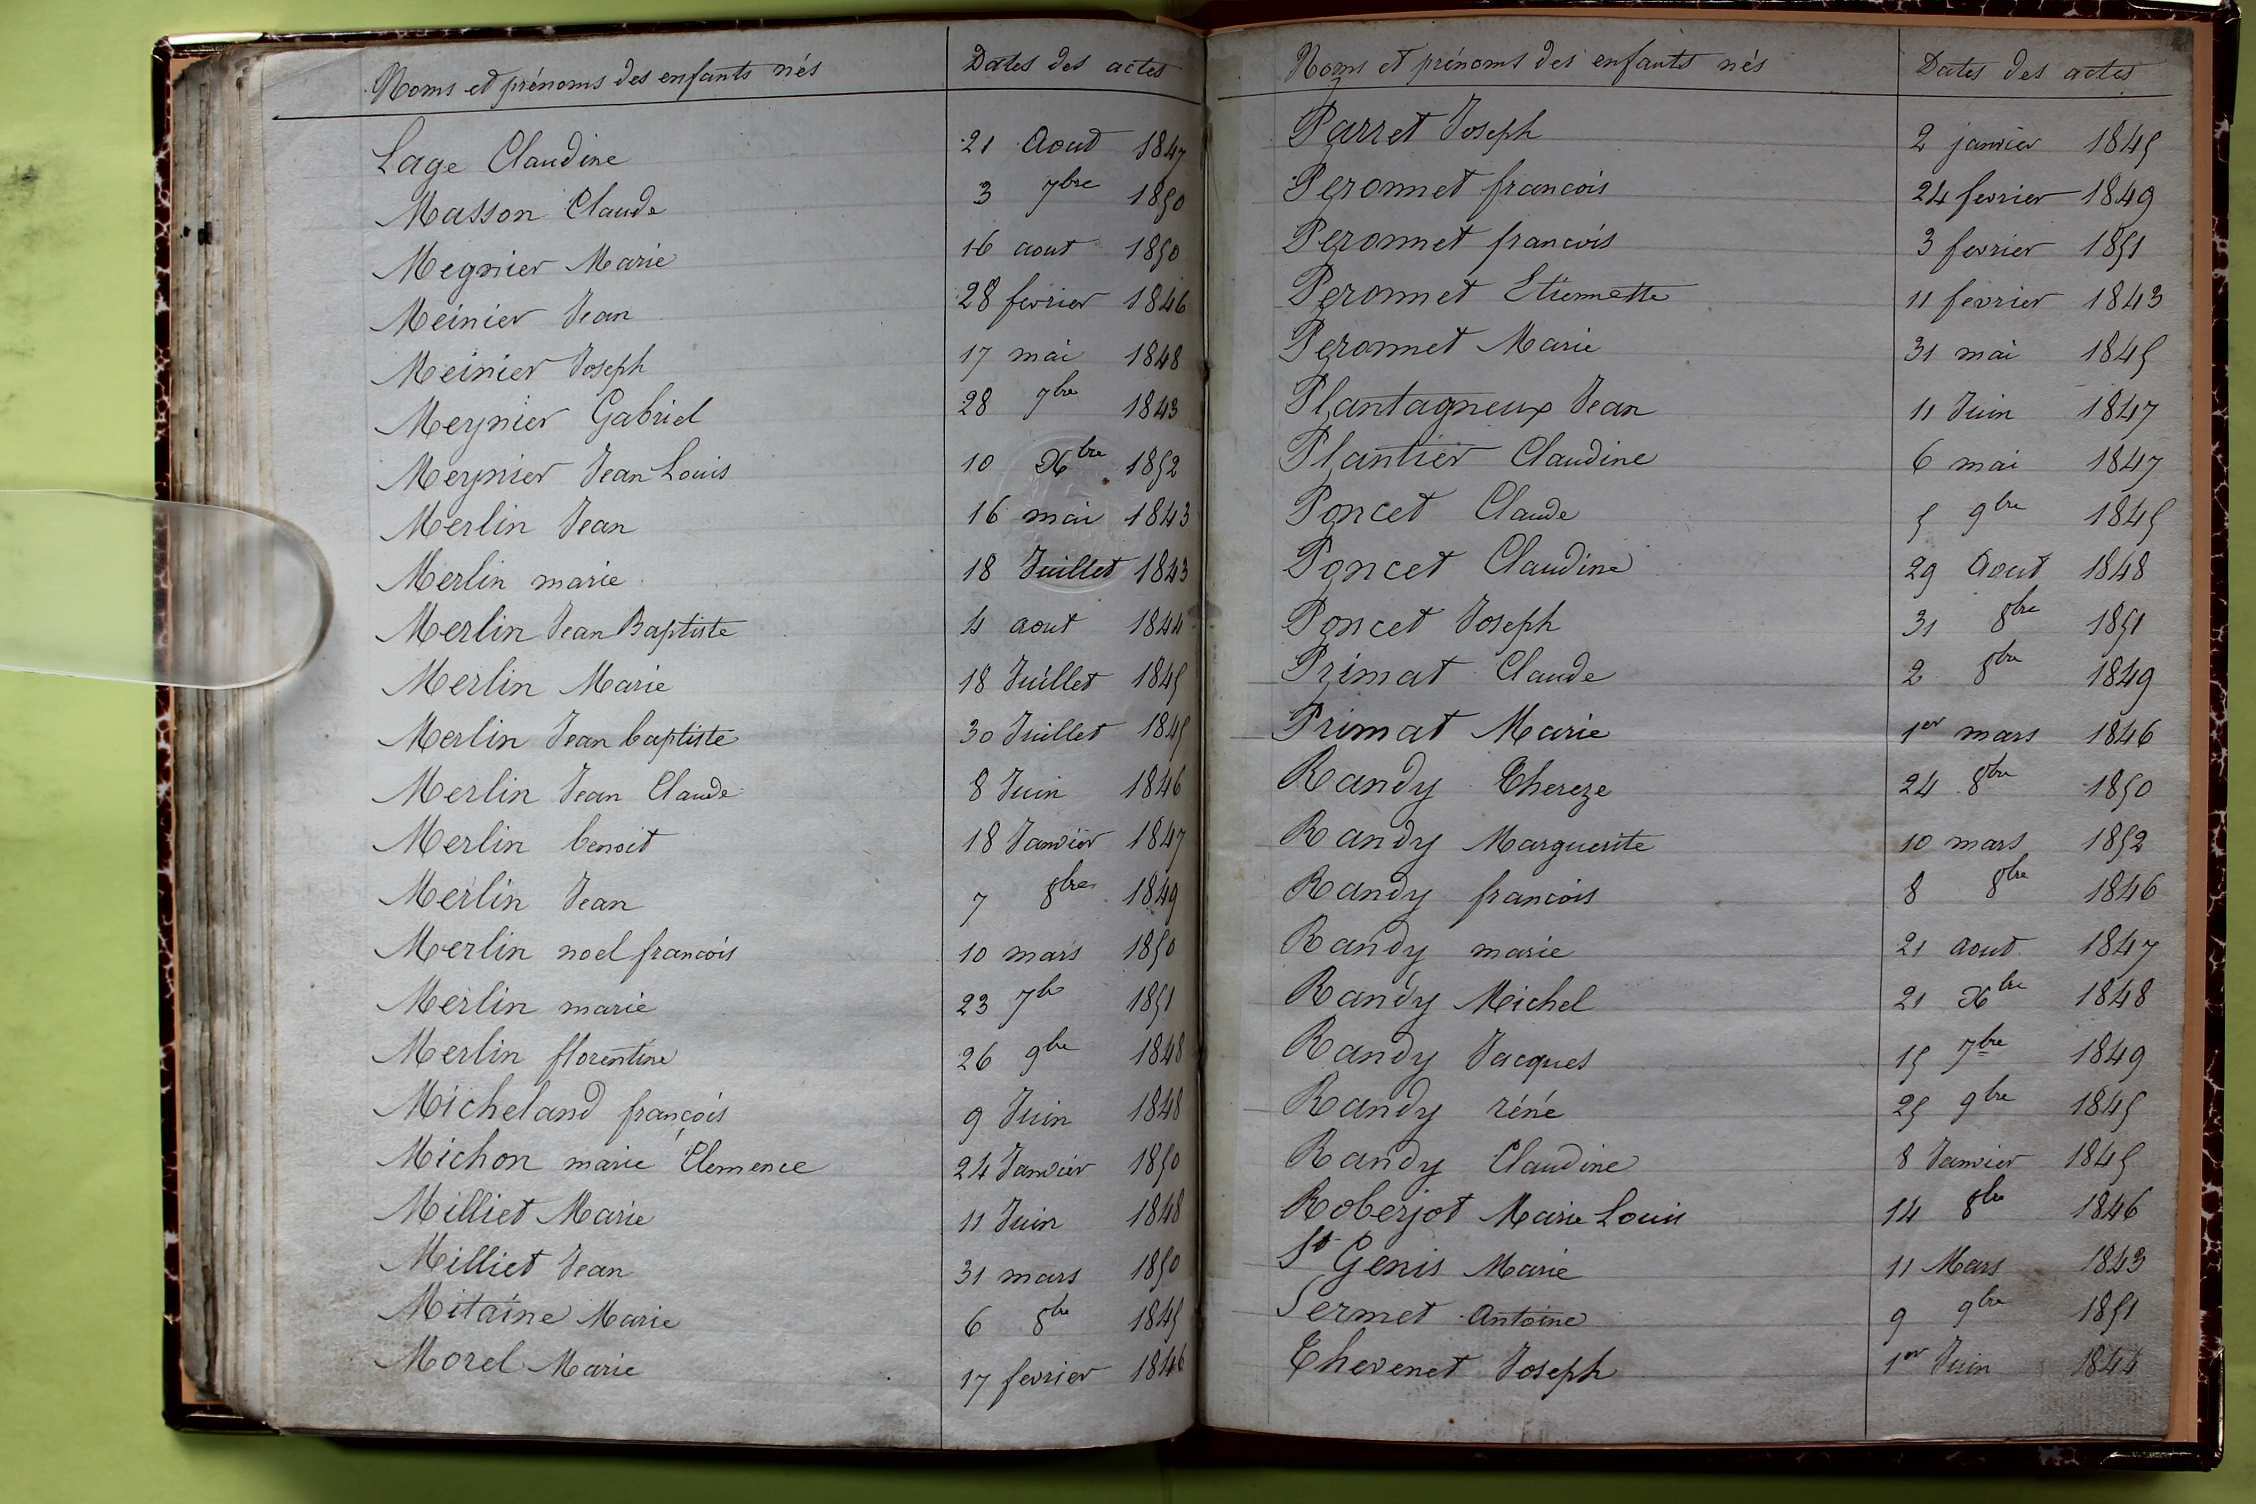 Noms et prénoms des enfants nés Dates des actes
Lage Claudine 21 Aout 1847
Masson Claude 3 7bre 1850
Megnier Marie 16 aout 1850
Meinier Jean 28 fevrier 1846
Meinier Joseph 17 mai 1848
Meynier Gabriel 28 7bre 1843
Meynier Jean Louis 10 Xbre 1852
Merlin Jean 16 mai 1843
Merlin marie 18 Juillet 1843
Merlin Jean Baptiste 4 aout 1844
Merlin Marie 18 Juillet 1845
Merlin Jean baptiste 30 Juillet 1845
Merlin Jean Claude 8 Juin 1846
Merlin benoit 18 Janvier 1847
Merlin Jean 7 8bre 1849
Merlin noel francois 10 mars 1850
Merlin marie 23 7bre 1851
Merlin florentine 26 9bre 1848
Micheland françois 9 Juin 1848
Michon marie Clemence 24 Janvier 1850
Milliet Marie 11 Juin 1848
Milliet Jean 31 mars 1850
Mitaine Marie 6 8bre 1845
Morel Marie 17 fevrier 1846
Noms et prénoms des enfants nés Dates des actes
Parret Joseph 2 janvier 1845
Peronnet francois 24 fevrier 1849
Peronnet francois 3 fevrier 1851
Peronnet Etiennette 11 fevrier 1843
Peronnet Marie 31 mai 1845
Plantagneux Jean 11 Juin 1847
Plantier Claudine 6 mai 1847
Poncet Claude 5 9bre 1845
Poncet Claudine 29 Aout 1848
Poncet Joseph 31 8bre 1851
Primat Claude 2 8bre 1849
Primat Marie 1er mars 1846
Randy Thereze 24 8bre 1850
Randy Marguerite 10 mars 1852
Randy francois 8 8bre 1846
Randy marie 21 aout 1847
Randy Michel 21 Xbre 1848
Randy Jacques 15 7bre 1849
Randy réné 25 9bre 1845
Randy Claudine 8 Janvier 1845
Roberjot Marie Louis 14 8bre 1846
St Genis Marie 11 Mars 1843
Sermet Antoine 9 9bre 1851
Thevenet Joseph 1er Juin 1844